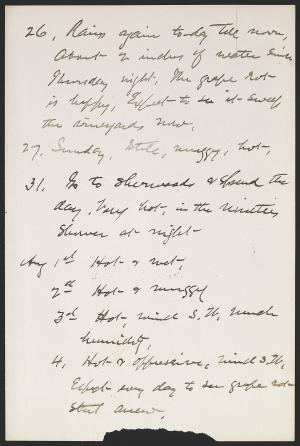 26, Rains again to-day till noon,
About 2 inches of water since
Thursday night, The grape rot
is happy, Expect to see it sweep
the vineyards now,
27, Sunday, Still, muggy, hot,
31. Go to Sherwoods & spend the
day, Very hot, in the nineties
Shower at night
Aug 1st Hot & wet,
2d Hot & muggy
3d Hot, wind S.W, much
humidity,
4, Hot & oppressive, wind S.W,
Expect every day to see grape rot
start anew,